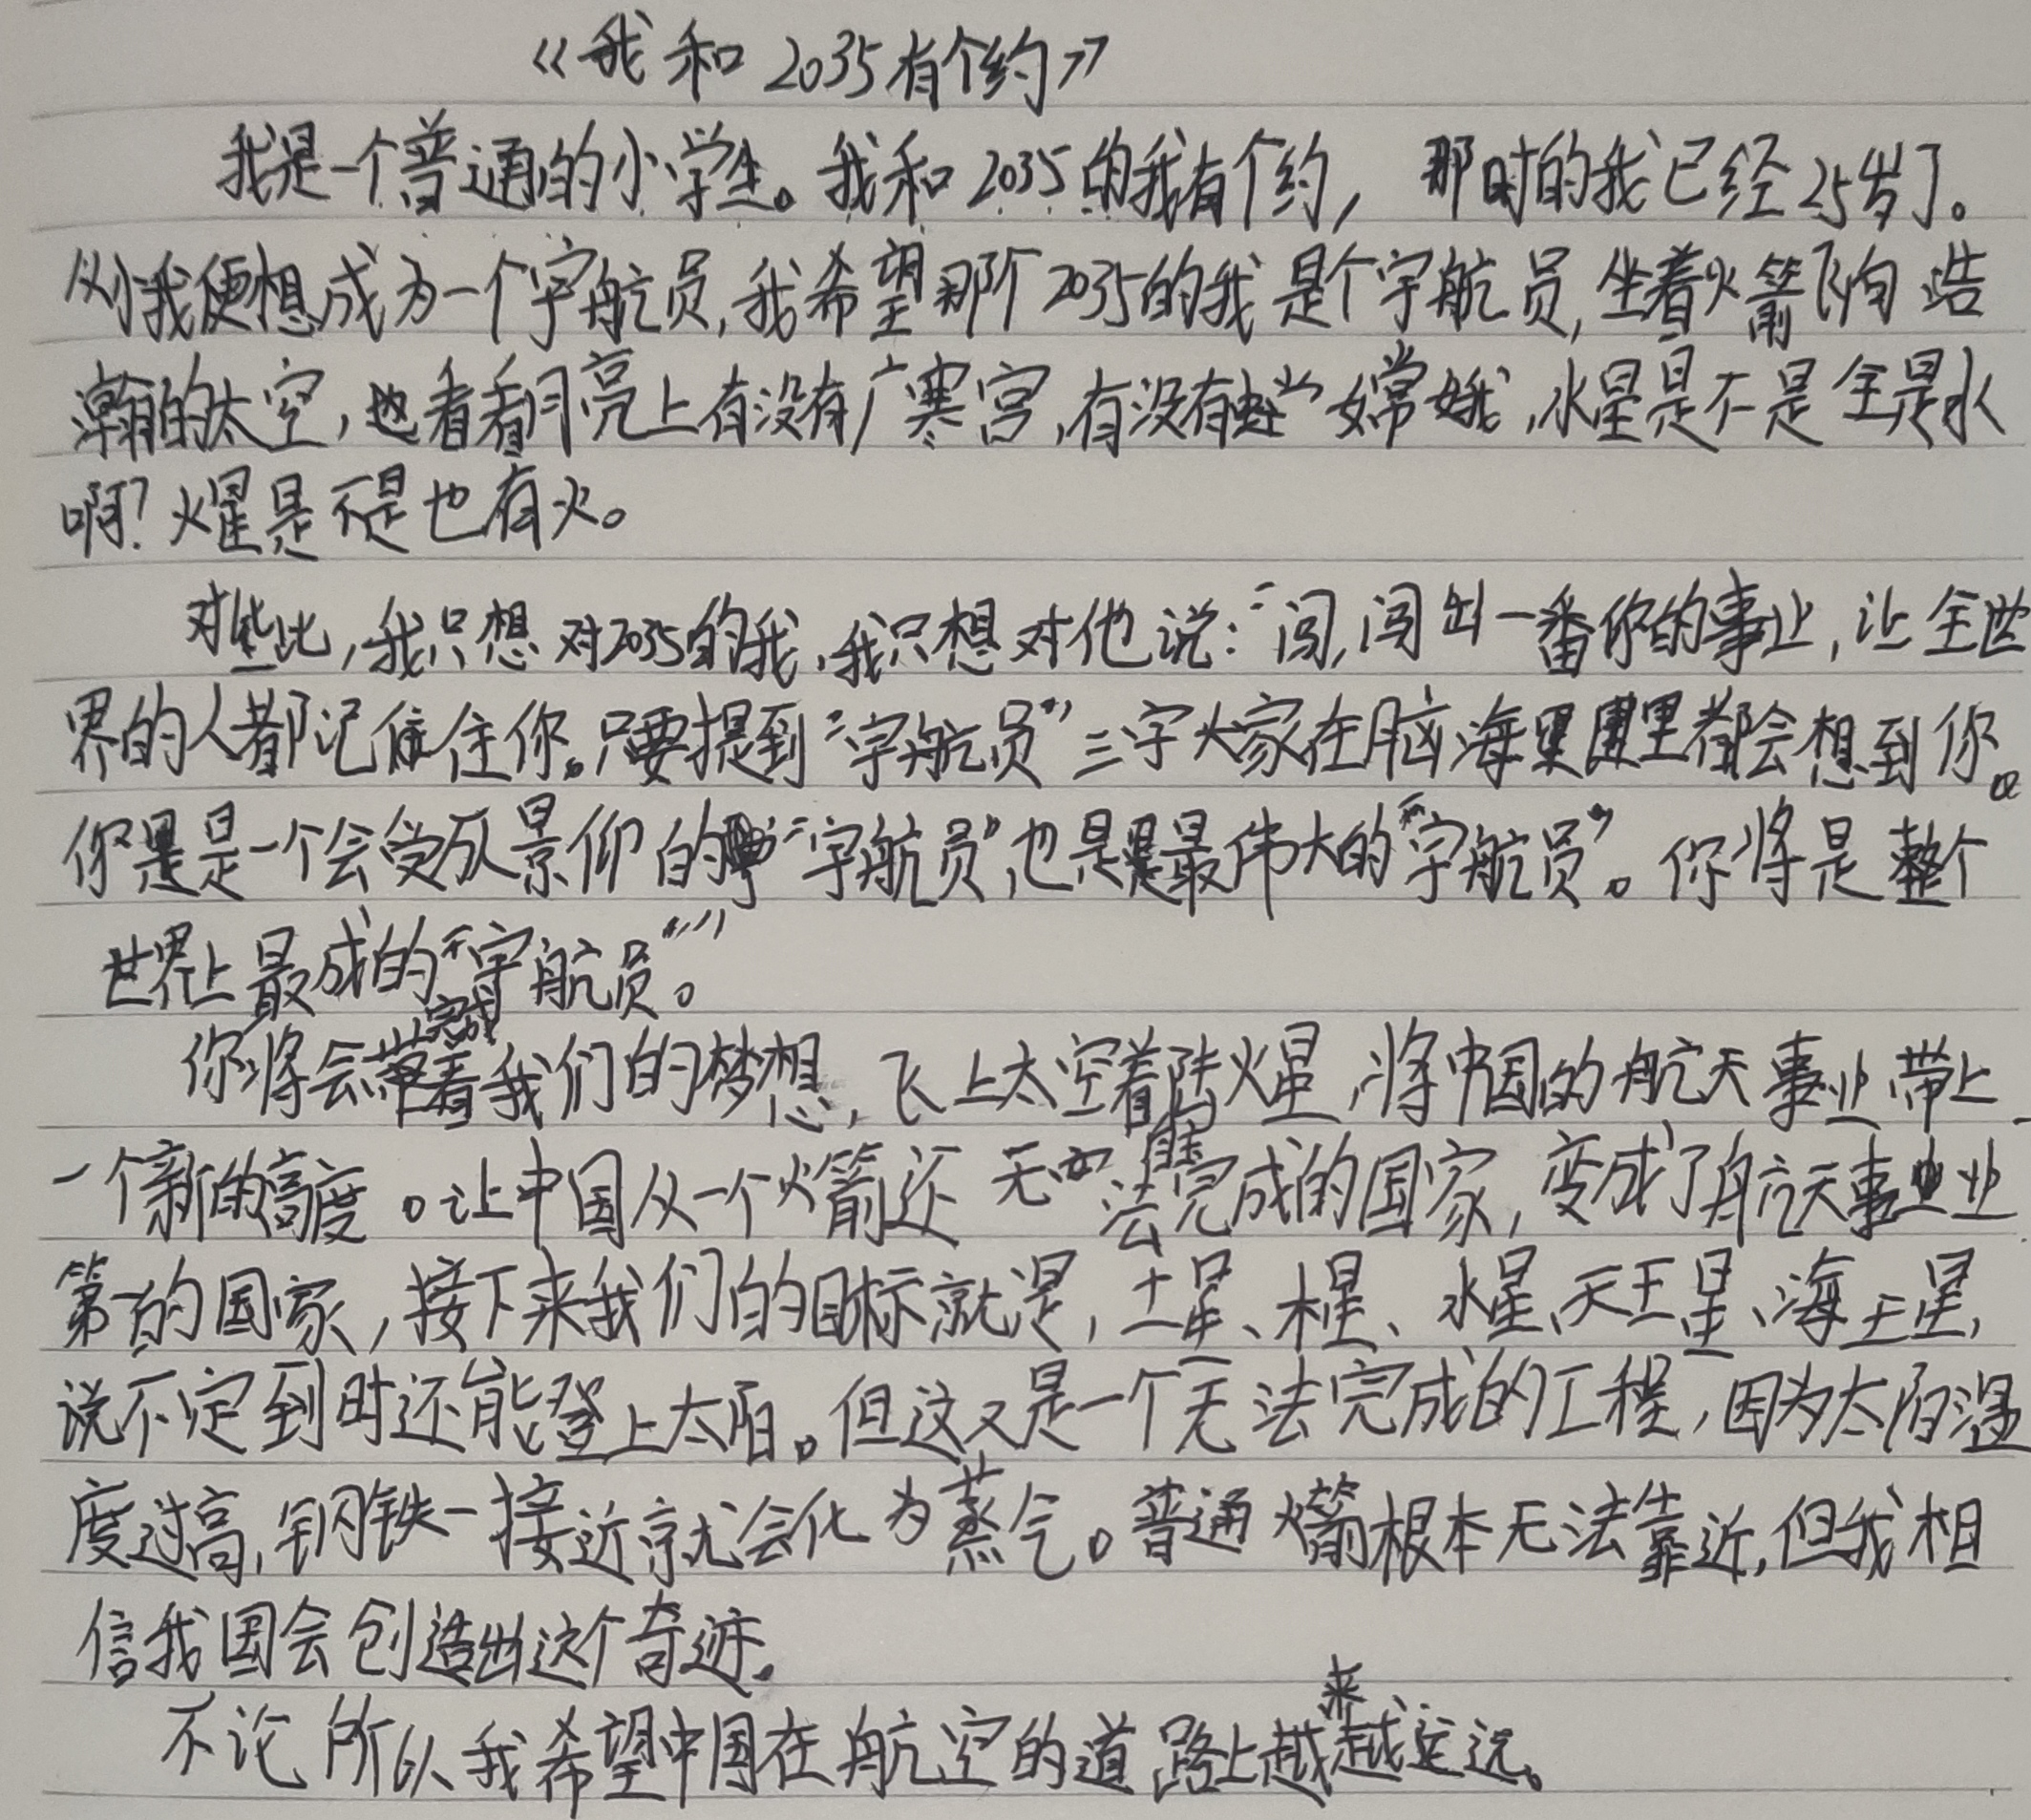 《我和2035有个约》
我是一个普通的小学生。我和2035的我有个约，那时的我已经25岁了。
从小我便想成为一个宇航员，我希望那个2035的我是个宇航员，坐着火箭飞向浩
瀚的太空，也看看月亮上有没有广寒宫，有没有嫦娥，水星是不是全是水
啊？火星是不是也有火。
对此，我只想对2035的我，我只想对他说：“闯，闯出一番你的事业，让全世
界的人都记住你。只要提到“宇航员”三字大家在脑海里都会想到你。
你是一个会受人景仰的“宇航员”，也是最伟大的“宇航员”。你将是整个
世界上最成的“宇航员”。”
你将会带着完成我们的梦想，飞上太空着陆火星，将中国的航天事业带上
一个新的高度。让中国从一个火箭还无法完成的国家，变成了航天事业
第一的国家，接下来我们的目标就是，土星、木星、水星、天王星、海王星，
说不定到时还能登上太阳。但这又是一个无法完成的工程，因为太阳温
度过高，钢铁一接近就会化为蒸气。普通火箭根本无法靠近，但我相
信我国会创造出这个奇迹。
不论所以我希望中国在航空的道路上越来越走远。